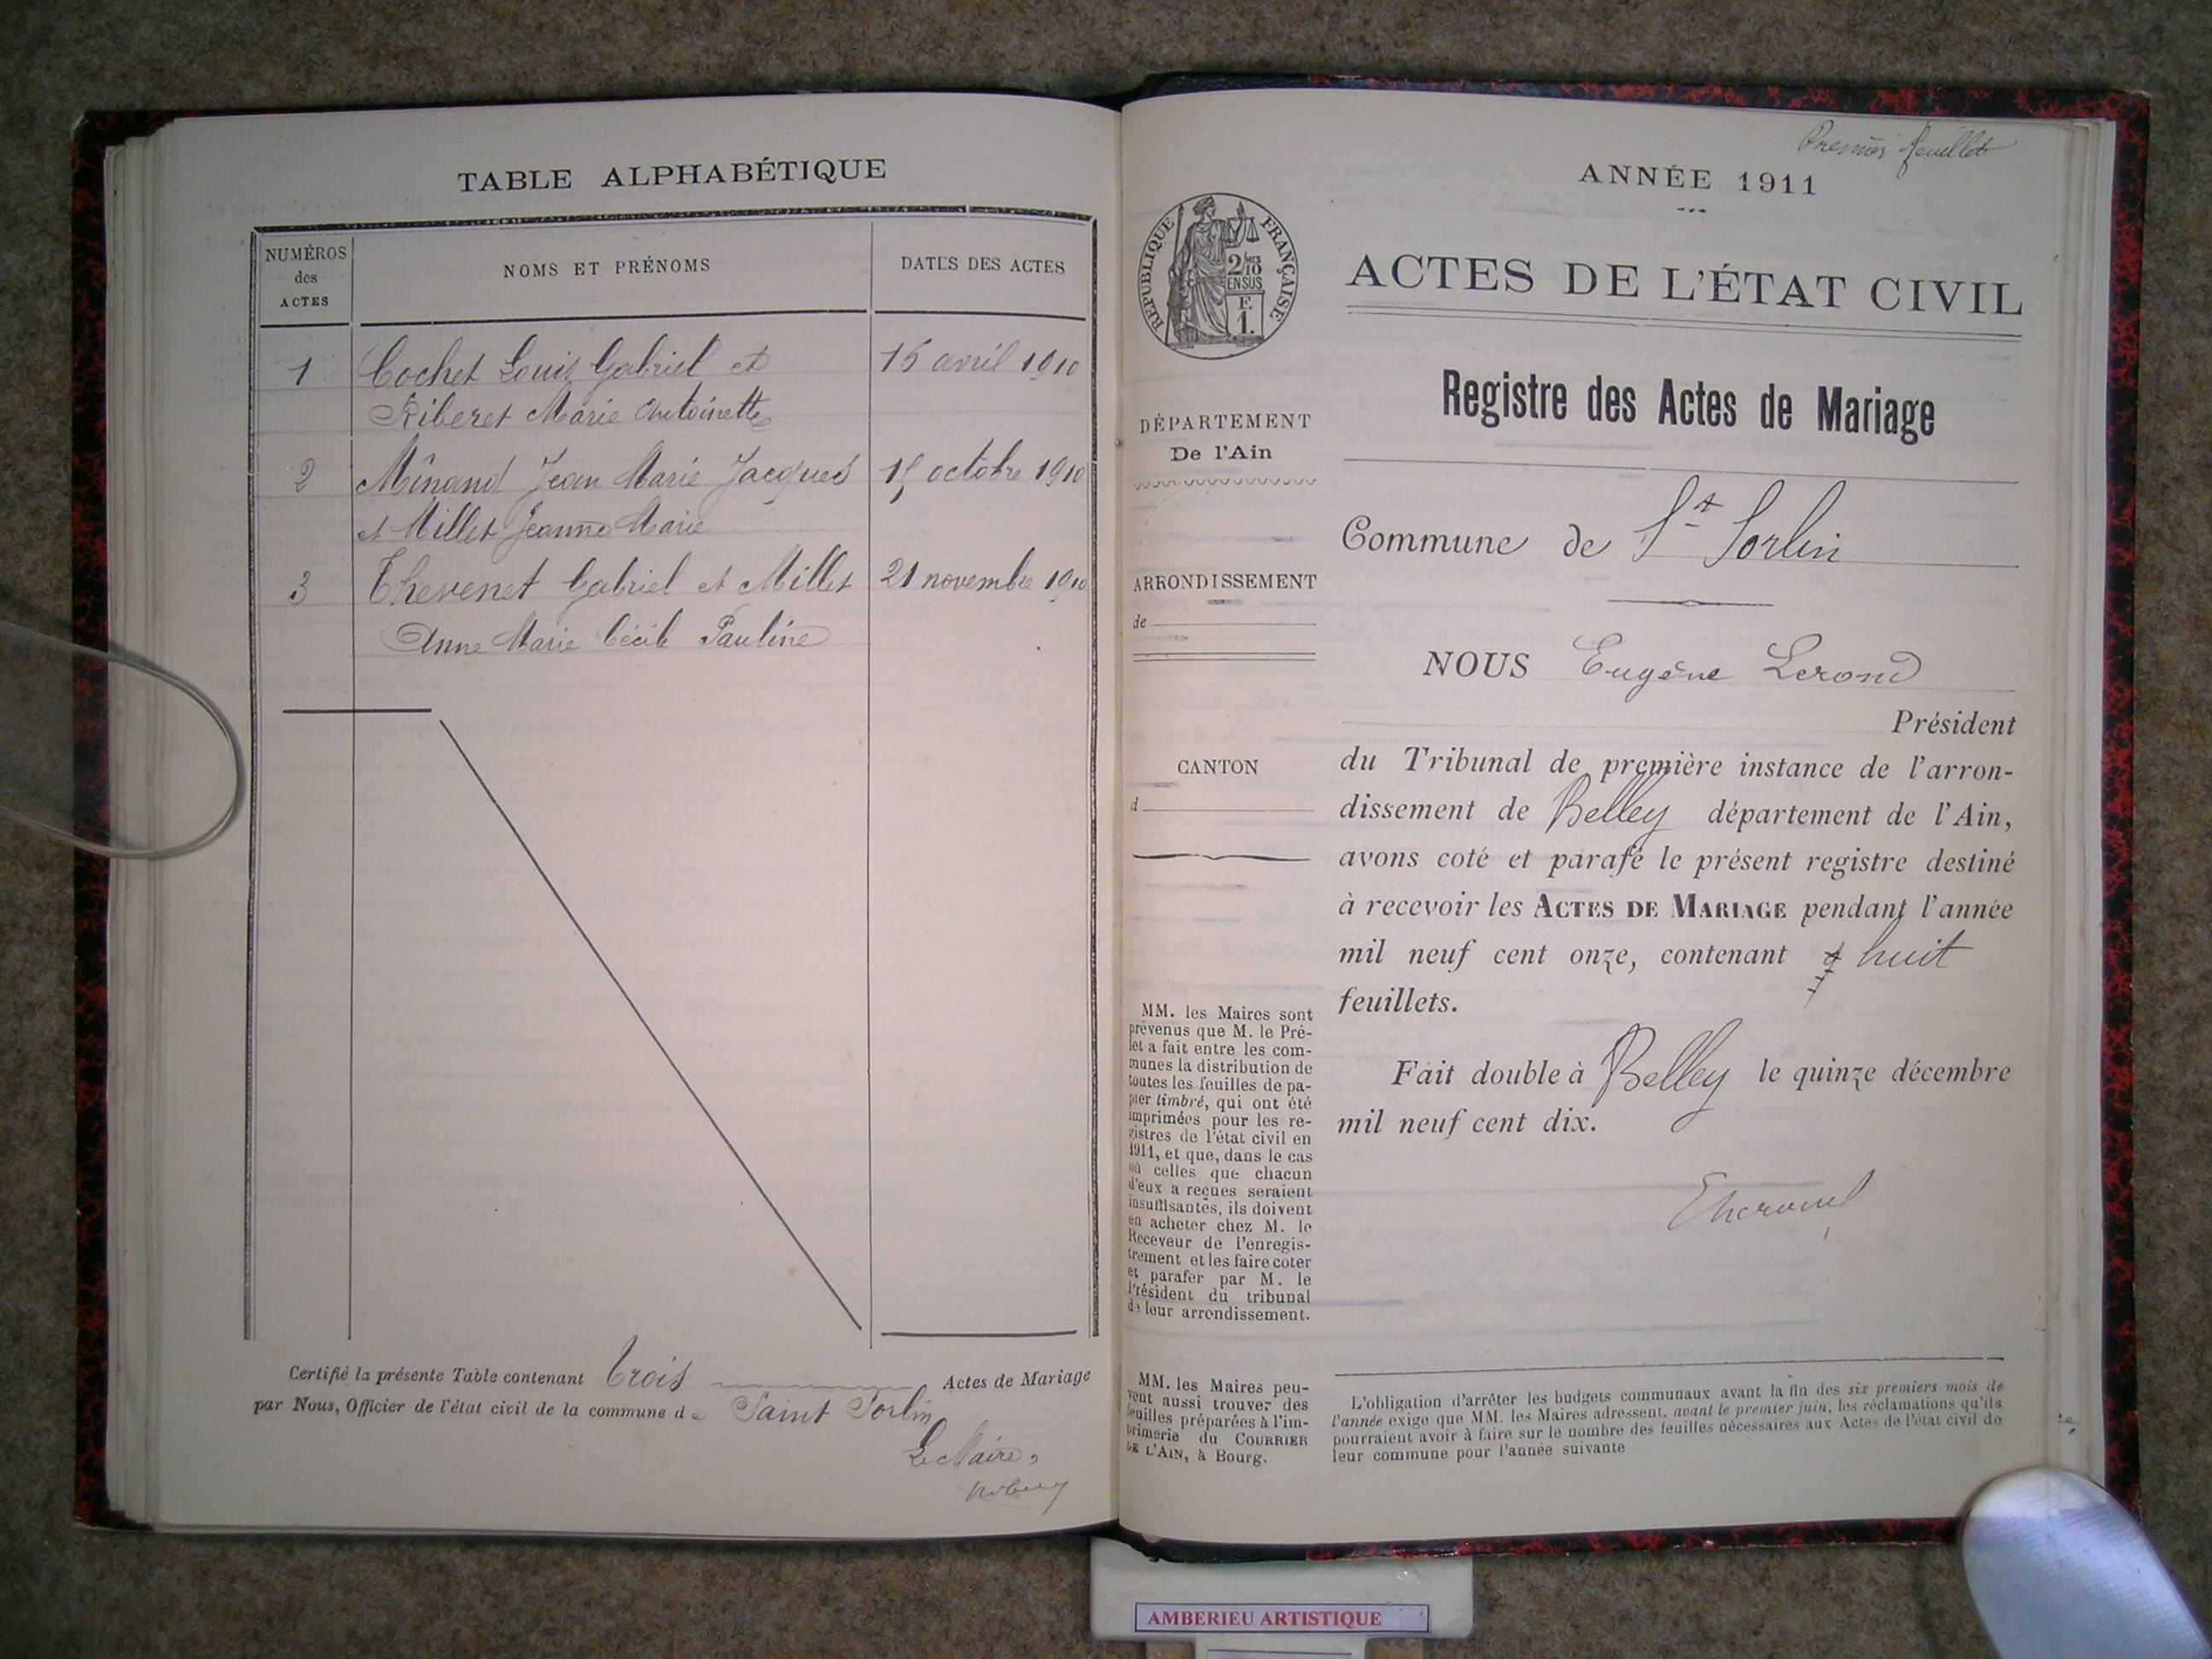 TABLE ALPHABÉTIQUE
NUMÉROS
des
ACTES
NOMS ET PRÉNOMS
DATES DES ACTES
1 Cochet Louis Gabriel et 16 avril 1910
Riberet Marie Antoinette
2 Minand Jean Marie Jacques 15 octobre 1910
et Millet Jeanne Marie
3 Thevenet Gabriel et Millet 21 novembre 1910
Anne Marie Cécile Pauline
Certifié la présente Table contenant Trois Actes de Mariage
par Nous, Officier de l'état civil de la commune de Saint Sorlin
Le Maire,
Premier feuillet
ANNÉE 1911
RÉPUBLIQUE FRANÇAISE
2/10
EN SUS
F.
1.
ACTES DE L'ÉTAT CIVIL
Registre des Actes de Mariage
DÉPARTEMENT
De l'Ain
Commune de St Sorlin
ARRONDISSEMENT
de
CANTON
d
NOUS Eugène Lerond
Président
du Tribunal de première instance de l'arron-
dissement de Belley département de l'Ain,
avons coté et parafé le présent registre destiné
à recevoir les ACTES DE MARIAGE pendant l'année
mil neuf cent onze, contenant huit
feuillets.
Fait double à Belley le quinze décembre
mil neuf cent dix.
MM. les Maires sont
prévenus que M. le Pré-
fet a fait entre les com-
munes la distribution de
toutes les feuilles de pa-
pier timbré, qui ont été
imprimées pour les re-
gistres de l'état civil en
1911, et que, dans le cas
où celles que chacun
d'eux a reçues seraient
insuffisantes, ils doivent
en acheter chez M. le
Receveur de l'enregis-
trement et les faire coter
et parafer par M. le
Président du tribunal
de leur arrondissement.
MM. les Maires peu-
vent aussi trouver des
feuilles préparées à l'im-
primerie du COURRIER
DE L'AIN, à Bourg.
L'obligation d'arrêter les budgets communaux avant la fin des six premiers mois de
l'année exige que MM. les Maires adressent, avant le premier juin, les réclamations qu'ils
pourraient avoir à faire sur le nombre des feuilles nécessaires aux Actes de l'état civil de
leur commune pour l'année suivante
AMBERIEU ARTISTIQUE